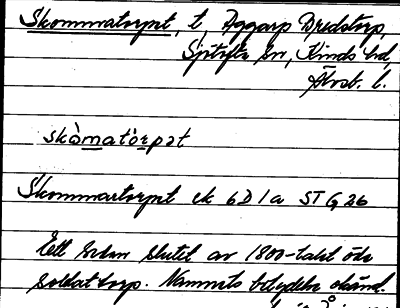 Skommatorpet, t, Aggarp Bredstorp,
Sn, Kinds hd,
Älvsb. l.
skòmatòrpət
Skommartorpet ek 6D1a STG26
Ett sedan slutet av 1800-talet öde
soldattorp. Namnets betydelse okänd.